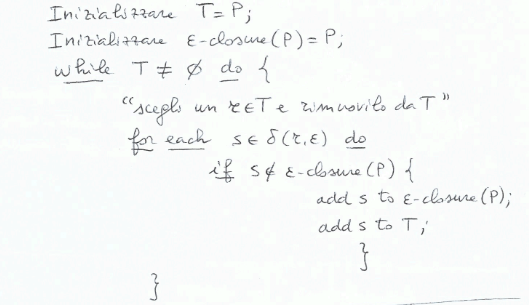 Inizializzare T = P;
Inizializzare ε-closure(P) = P;
while T ≠ ∅ do {
"scegli un r∈T e rimuovilo da T"
for each s ∈ δ(r,ε) do
if s∉ ε-closure(P) {
add s to ε-closure(P);
add s to T;
}
}